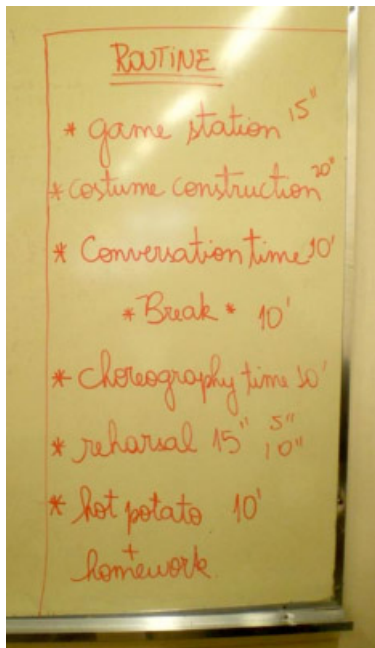 ROUTINE
* game station 15"
* costume construction 20"
* Conversation time 10'
* Break * 10'
* choreography time 10'
* reharsal 15" 5"
10"
* hot potato 10'
+
homework